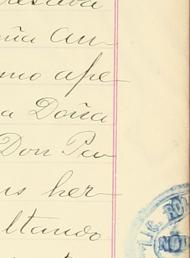 esava
ña An-
mo ape
a Doña
Don Pau
us her
ltando